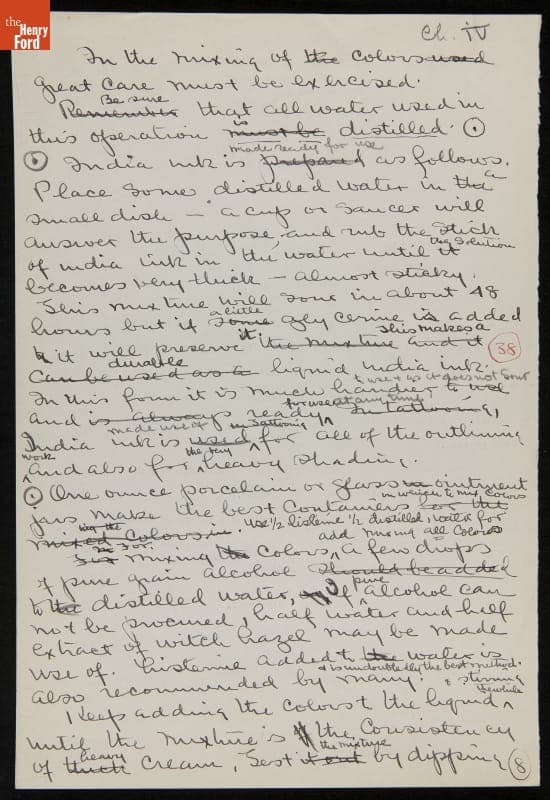 the
Henry
Ford
Ch. IV
In the mixing of the colors used
great care must be exercised.
Be sure
Remember that all water used in
is
this operation must be distilled.
made ready for use
India ink is prepared as follows.
a
Place some distilled water in the
small dish — a cup or saucer will
answer the purpose, and rub the stick
the solution
of india ink in the water until it
becomes very thick — almost sticky.
This mixture will sour in about 48
a little
hours but if some glycerine is added
it this makes a
it will preserve the mixture and it
38
durable
can be used as a liquid india ink.
to use & as it does not sour
In this form it is much handier to use
for use at any time
and is always ready in tattooing,
made use of in tattooing
India ink is used for all of the outlining
work the very
and also for heavy shading.
One ounce porcelain or glass ointment
in which to mix colors
jars make the best containers for the
use 1/2 listerine 1/2 distilled water for
mixed colors in.
add mixing all colors
For
mixing the colors, a few drops
of pure grain alcohol should be added
pure
to the distilled water, If alcohol can
not be procured, half water and half
extract of witch hazel may be made
use of. Listerine added to the water is
& is undoubtedly the best method.
also recommended by many.
& stirring
meanwhile
Keep adding the colors to the liquid
until the mixture is the consistency
heavy the mixture
of thick cream, Test it out by dipping
8